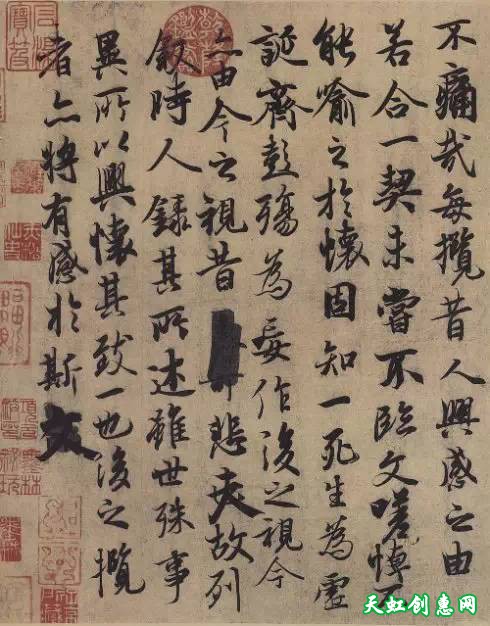 不痛哉每攬昔人興感之由
若合一契未嘗不臨文嗟悼不
能喻之於懷固知一死生為虛
誕齊彭殤為妄作後之視今
亦由今之視昔悲夫故列
敘時人錄其所述雖世殊事
異所以興懷其致一也後之攬
者亦將有感於斯文
天虹创惠网